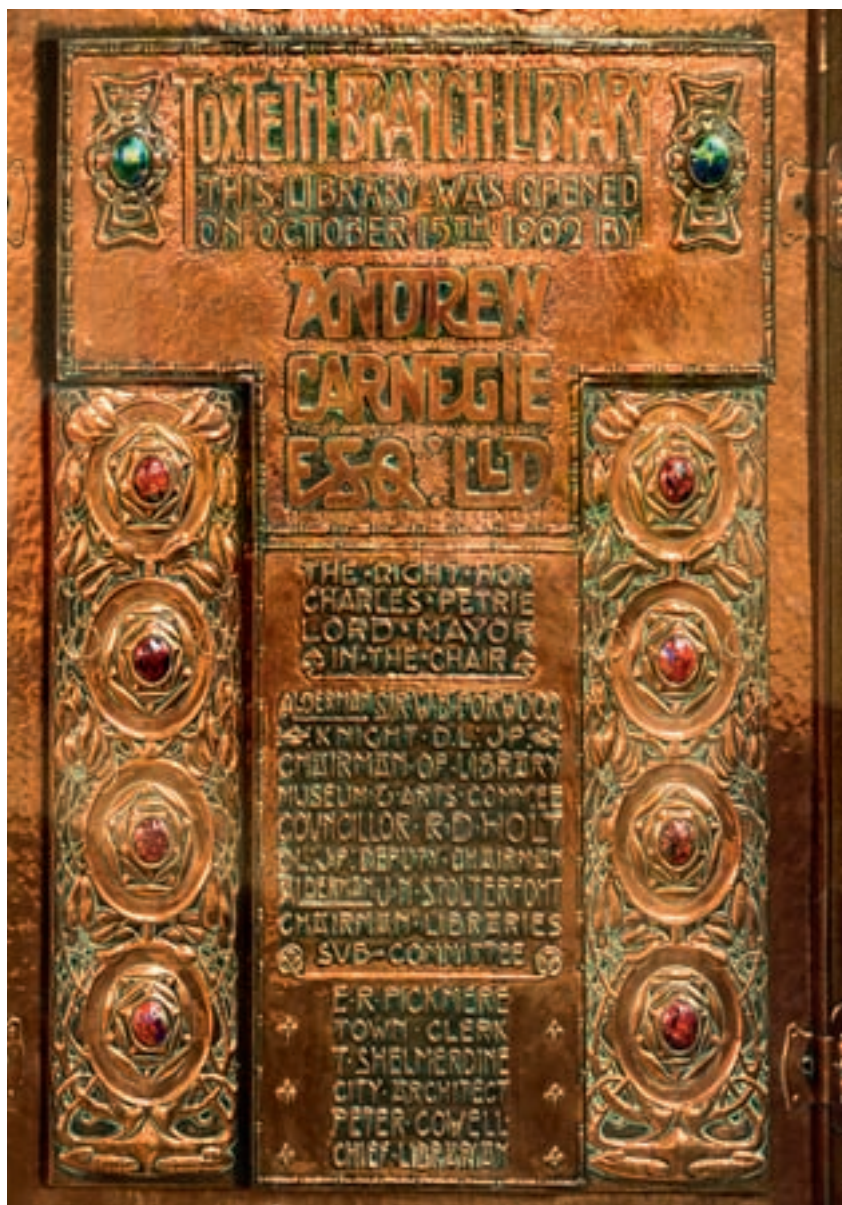 TOXTETH·BRANCH·LIBRARY
THIS·LIBRARY·WAS·OPENED
ON·OCTOBER·15TH·1902·BY
ANDREW
CARNEGIE
ESQ·LLD
THE·RIGHT·HON
CHARLES·PETRIE
LORD·MAYOR
IN·THE·CHAIR
ALDERMAN·SIR·W·B·FORWOOD
KNIGHT·D.L:J.P.
CHAIRMAN·OF·LIBRARY
MUSEUM·&·ARTS·COMMEE
COUNCILLOR·R·D·HOLT
D.L.·J.P.·DEPUTY·CHAIRMAN
ALDERMAN·J·N·STOLTERFOHT
CHAIRMAN·LIBRARIES
SUB-COMMITTEE
E·R·PICKMERE
TOWN·CLERK
T·SHELMERDINE
CITY·ARCHITECT
PETER·COWELL
CHIEF·LIBRARIAN